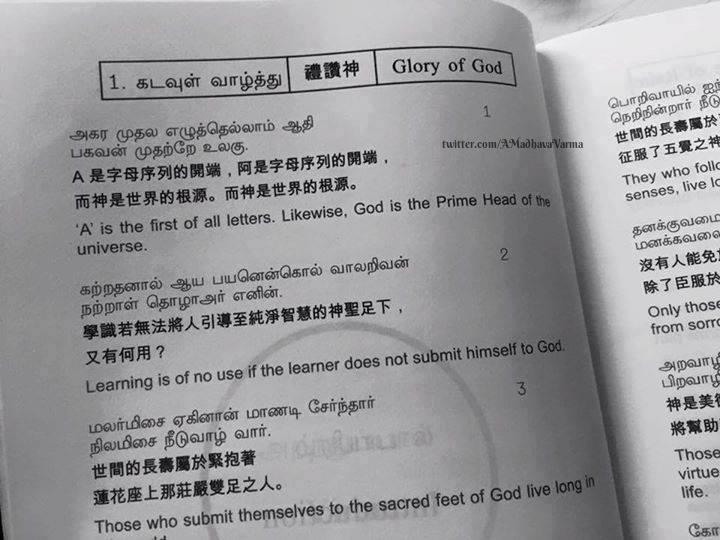 1. கடவுள் வாழ்த்து 禮讚神 Glory of God
1
அகர முதல எழுத்தெல்லாம் ஆதி
பகவன் முதற்றே உலகு.
twitter.com/AMadhavaVarma
A 是字母序列的開端，阿是字母序列的開端，
而神是世界的根源。而神是世界的根源。
'A' is the first of all letters. Likewise, God is the Prime Head of the
universe.
2
கற்றதனால் ஆய பயனென்கொல் வாலறிவன்
நற்றாள் தொழாஅர் எனின்.
學識若無法將人引導至純淨智慧的神聖足下，
又有何用？
Learning is of no use if the learner does not submit himself to God.
3
மலர்மிசை ஏகினான் மாணடி சேர்ந்தார்
நிலமிசை நீடுவாழ் வார்.
世間的長壽屬於緊抱著
蓮花座上那莊嚴雙足之人。
Those who submit themselves to the sacred feet of God live long in
பொறிவாயில்
நெறிநின்றார்
世間的長壽屬於
征服了五覺之神
They who
senses, live
தனக்குவமை
மனக்கவலை
沒有人能免
除了臣服於
Only those
from
அறவாழி
பிறவாழி
神是美
將幫助
Those
virtue
life.